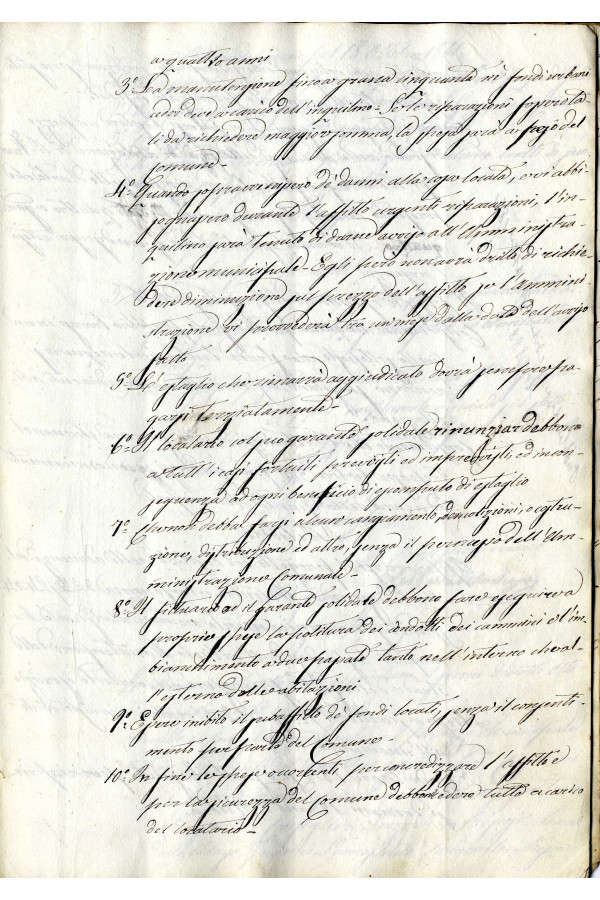 a quattro anni
3º La manutenzione fino a grana cinquanta ni fondi urbani
ceder deve a carico dell'inquilino - Se le riparazioni fossero ta-
li da richiedere maggior somma, la spesa sarà a peso del
Comune -
4º Quando possa avvenirsi de' danni alla casa locata, e vi abbi-
sognassero durante l'affitto urgenti riparazioni, l'in-
quilino sarà tenuto di darne avviso all'Amministra-
zione municipale - Egli però non avrà dritto di richie-
dere diminuzione sul prezzo dell'affitto se l'Ammini-
strazione vi provvederà tra un mese dalla data dell'avviso
fatto
5º L'estaglio che rimarrà aggiudicato dovrà sempre pa-
garsi terziatamente -
6º Il locatario col suo garante solidale rinunziar debbono
a tutt'i casi fortuiti previsti ed imprevisti, ed in con-
seguenza ad ogni beneficio di escomputo di estaglio
7º Che non debba farsi alcun cangiamento, demolizioni, o costru-
zione, distribuzione ed altro, senza il permesso dell'Am-
ministrazione Comunale -
8º Il fittuario ed il garante solidale debbono fare eseguire a
proprie spese la politura dei condotti dei cammini e l'im-
bianchimento a due passate tanto nell'interno che al-
l'esterno delle abitazioni
9º Essere inibito il subaffitto de' fondi locati, senza il consenti-
mento per parte del Comune -
10º In fine le spese occorrenti per concredizzare l'affitto e
per la sicurezza del Comune debbono cedere tutte a carico
del locatario -